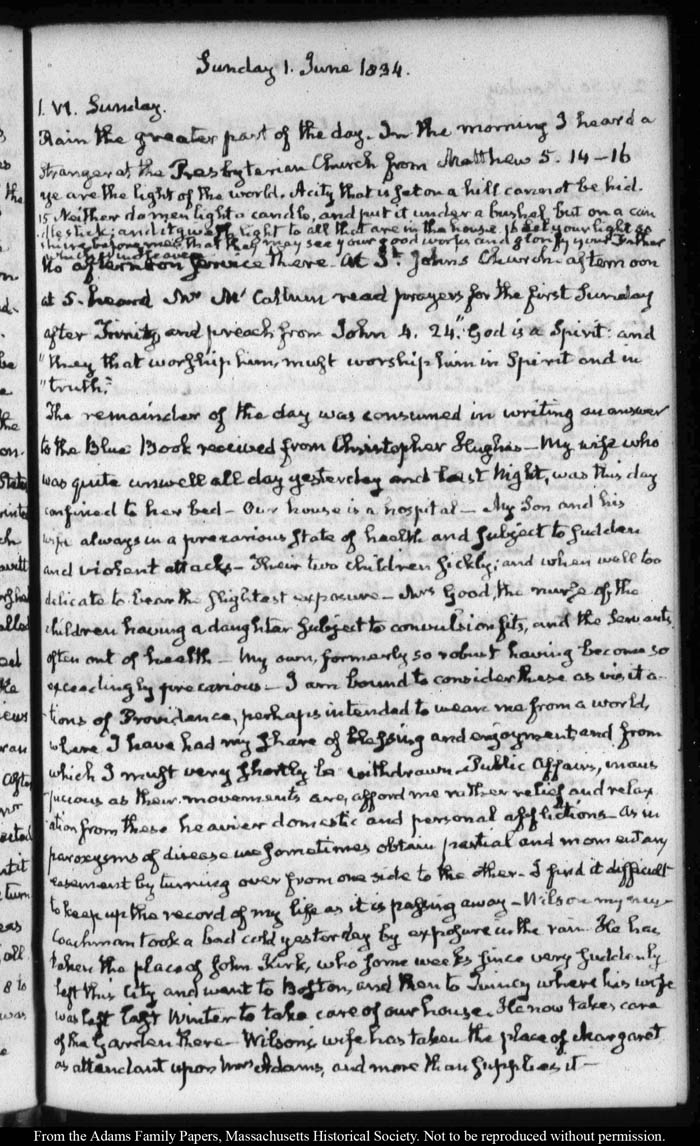 Sunday 1. June 1834.
1. VI. Sunday.
Rain the greater part of the day. In the morning I heard a
stranger at the Presbyterian Church from Matthew 5. 14-16
ye are the light of the world. A city that is set on a hill cannot be hid.
15 Neither do men light a candle, and put it under a bushel but on a can
dlestick; and it giveth light to all that are in the house. 16 Let your light so
shine before men that they may see your good works and glorify your Father
which is in heaven
No afternoon service there. At St. Johns Church afternoon
at 5. heard Mr McCallum read prayers for the first Sunday
after Trinity, and preach from John 4. 24. "God is a Spirit: and
"they that worship him, must worship him in Spirit and in
"truth."
The remainder of the day was consumed in writing an answer
to the Blue Book received from Christopher Hughes — My wife who
was quite unwell all day yesterday and last Night, was this day
confined to her bed — Our house is a hospital — My Son and his
wife always in a precarious state of health and subject to sudden
and violent attacks — Their two children sickly; and when well too
delicate to bear the slightest exposure — Mrs Good, the nurse of the
children having a daughter subject to convulsion fits, and the servants
often out of health — My own, formerly so robust having become so
exceedingly precarious — I am bound to consider these as visita-
tions of Providence, perhaps intended to wean me from a world,
where I have had my share of blessing and enjoyment, and from
which I must very shortly be withdrawn — Public Affairs, inaus
picious as their movements are, afford me rather relief and relax
ation from these heavier domestic and personal afflictions — As in
paroxysms of disease we sometimes obtain partial and momentary
easement by turning over from one side to the other — I find it difficult
to keep up the record of my life as it is passing away — Wilson my new
Coachman took a bad cold yesterday by exposure in the rain. He has
taken the place of John Kirk, who some weeks since very suddenly
left this City and went to Boston, and then to Quincy where his wife
was left last Winter to take care of our house. He now takes care
of the Garden there — Wilson's wife has taken the place of Margaret
as attendant upon Mrs Adams, and more than supplies it —
From the Adams Family Papers, Massachusetts Historical Society. Not to be reproduced without permission.